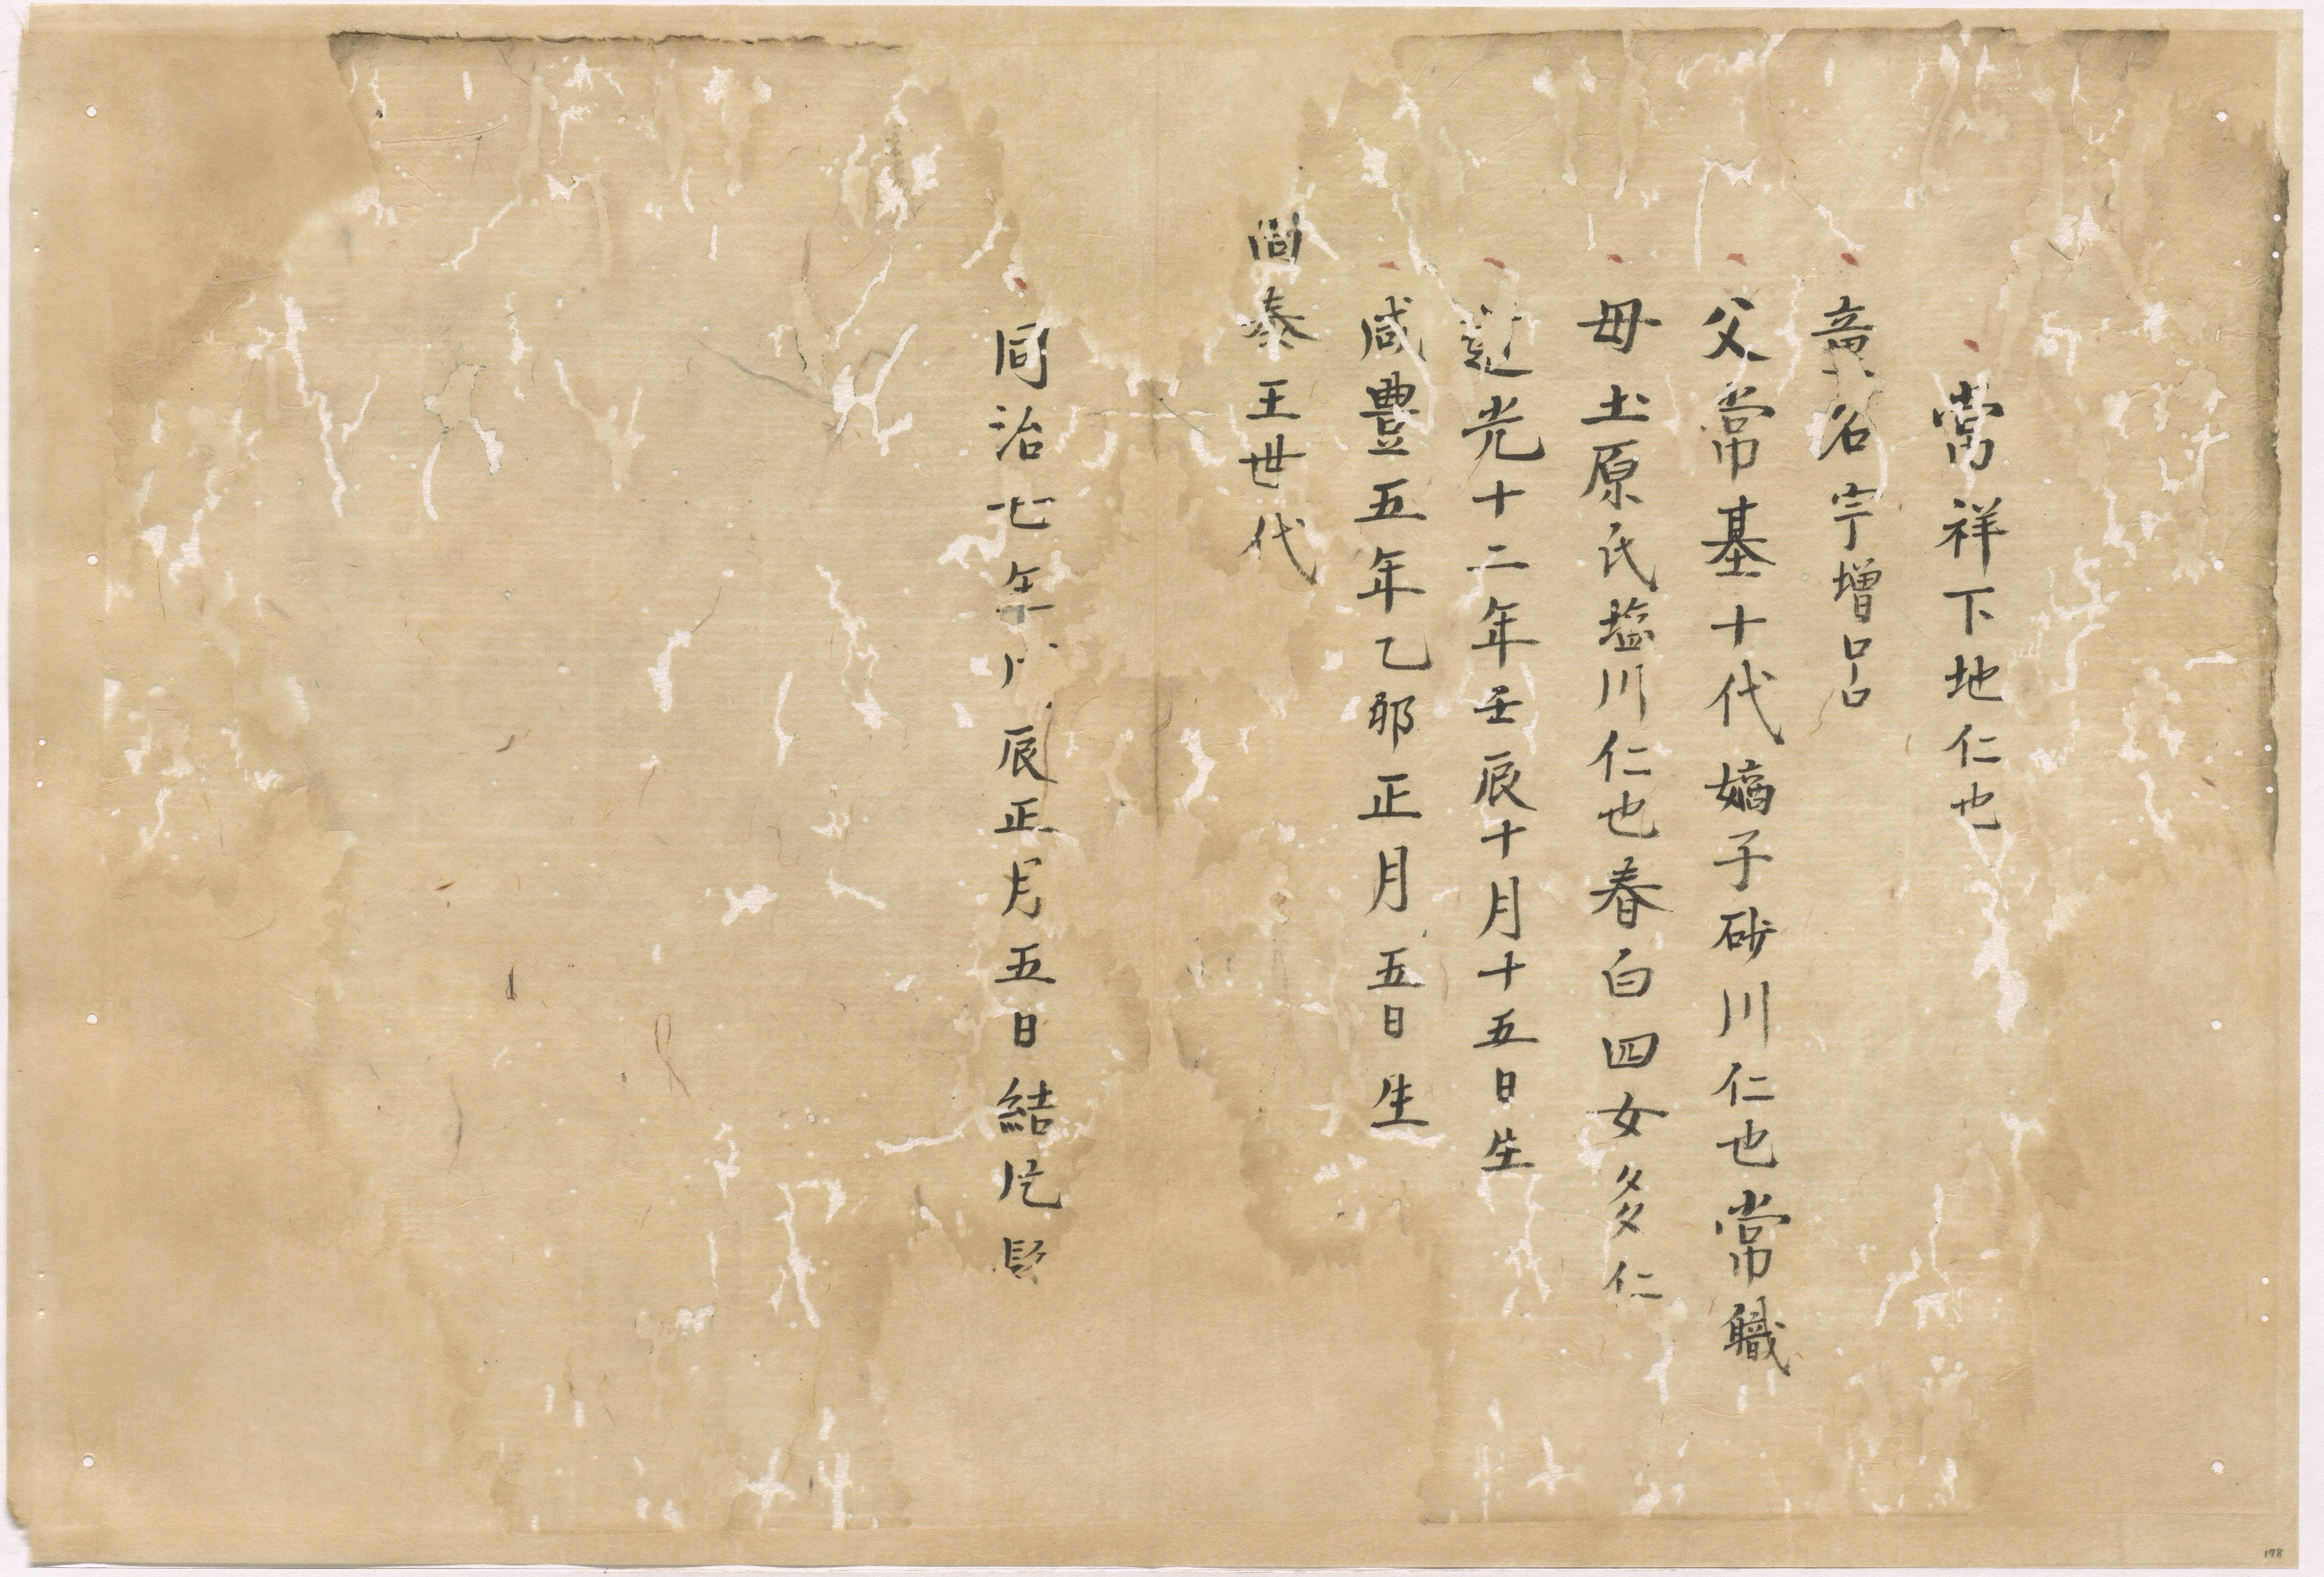 常祥下地仁也
童名宇増呂
父常基十代嫡子砂川仁也常職
母土原氏塩川仁也春白四女多仁
道光十二年壬辰十月十五日生
咸豊五年乙卯正月五日生
尚泰王世代
同治七年戊辰正月五日結片髪
178